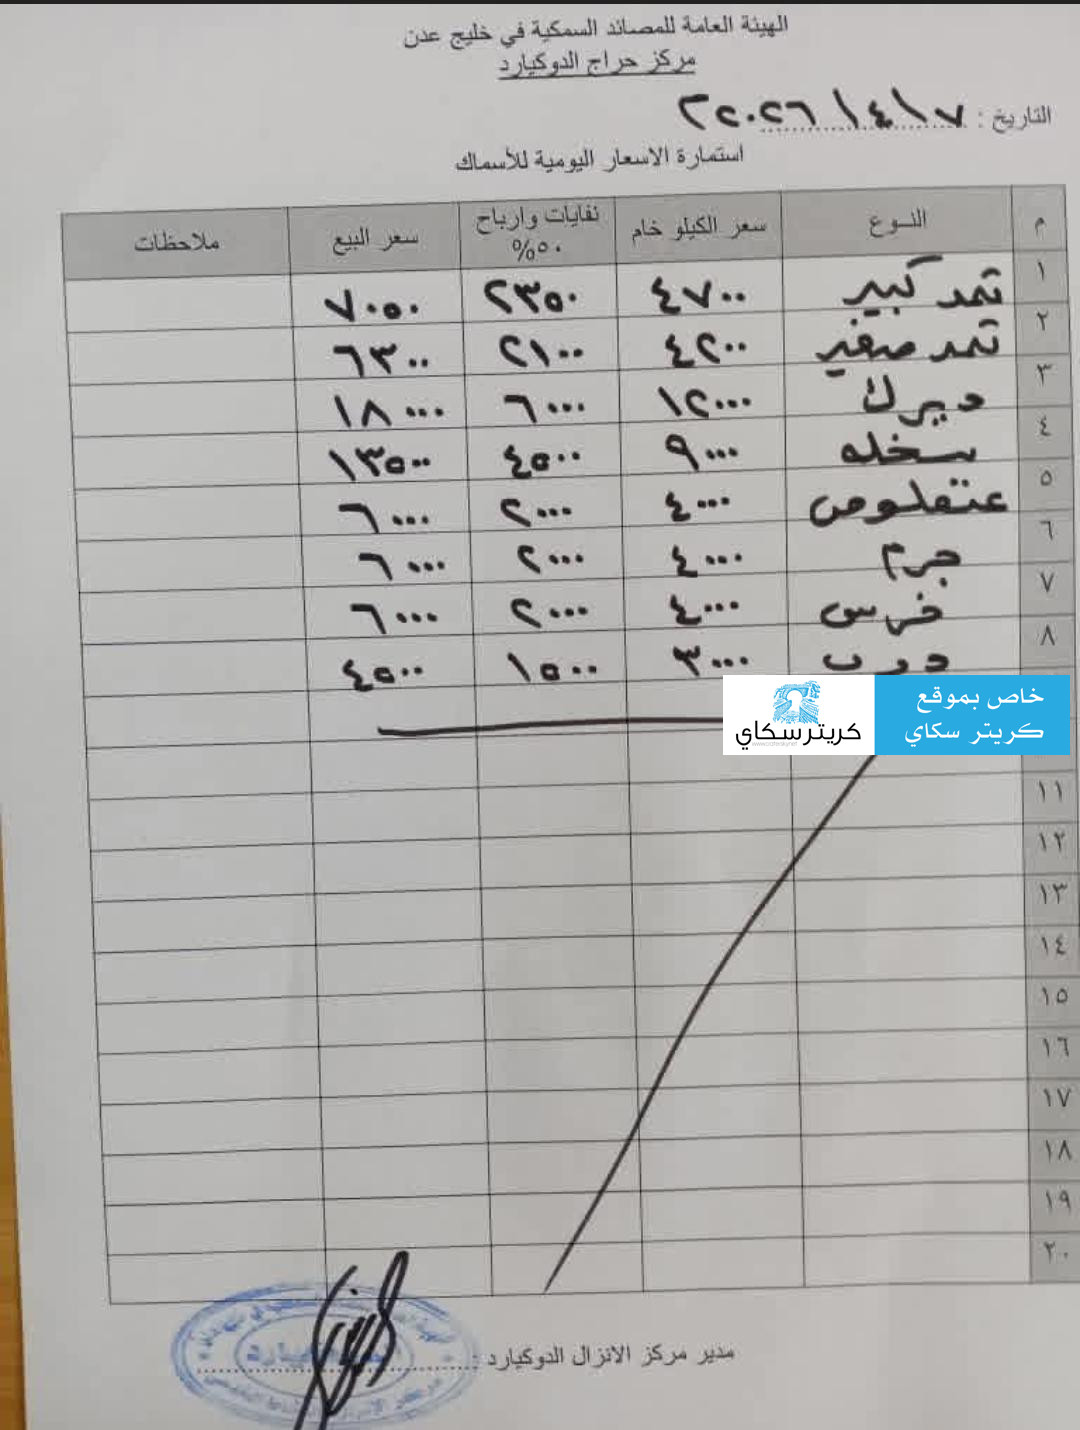 الهيئة العامة للمصائد السمكية في خليج عدن
مركز حراج الدوكيارد
التاريخ : ٧ / ٤ / ٢٠٢٦
استمارة الاسعار اليومية للأسماك
م النوع سعر الكيلو خام نفايات وارباح ٥٠% سعر البيع ملاحظات
١ ثمد كبير ٤٧٠٠ ٢٣٥٠ ٧٠٥٠
٢ ثمد صغير ٤٢٠٠ ٢١٠٠ ٦٣٠٠
٣ ديرك ١٢٠٠٠ ٦٠٠٠ ١٨٠٠٠
٤ سخله ٩٠٠٠ ٤٥٠٠ ١٣٥٠٠
٥ عنفلوص ٤٠٠٠ ٢٠٠٠ ٦٠٠٠
٦ جرم ٤٠٠٠ ٢٠٠٠ ٦٠٠٠
٧ ٤٠٠٠ ٢٠٠٠ ٦٠٠٠
٨ درب ٣٠٠٠ ١٥٠٠ ٤٥٠٠
خاص بموقع
كريتر سكاي
كريترسكاي
١١
١٢
١٣
١٤
١٥
١٦
١٧
١٨
١٩
٢٠
مدير مركز الانزال الدوكيارد :